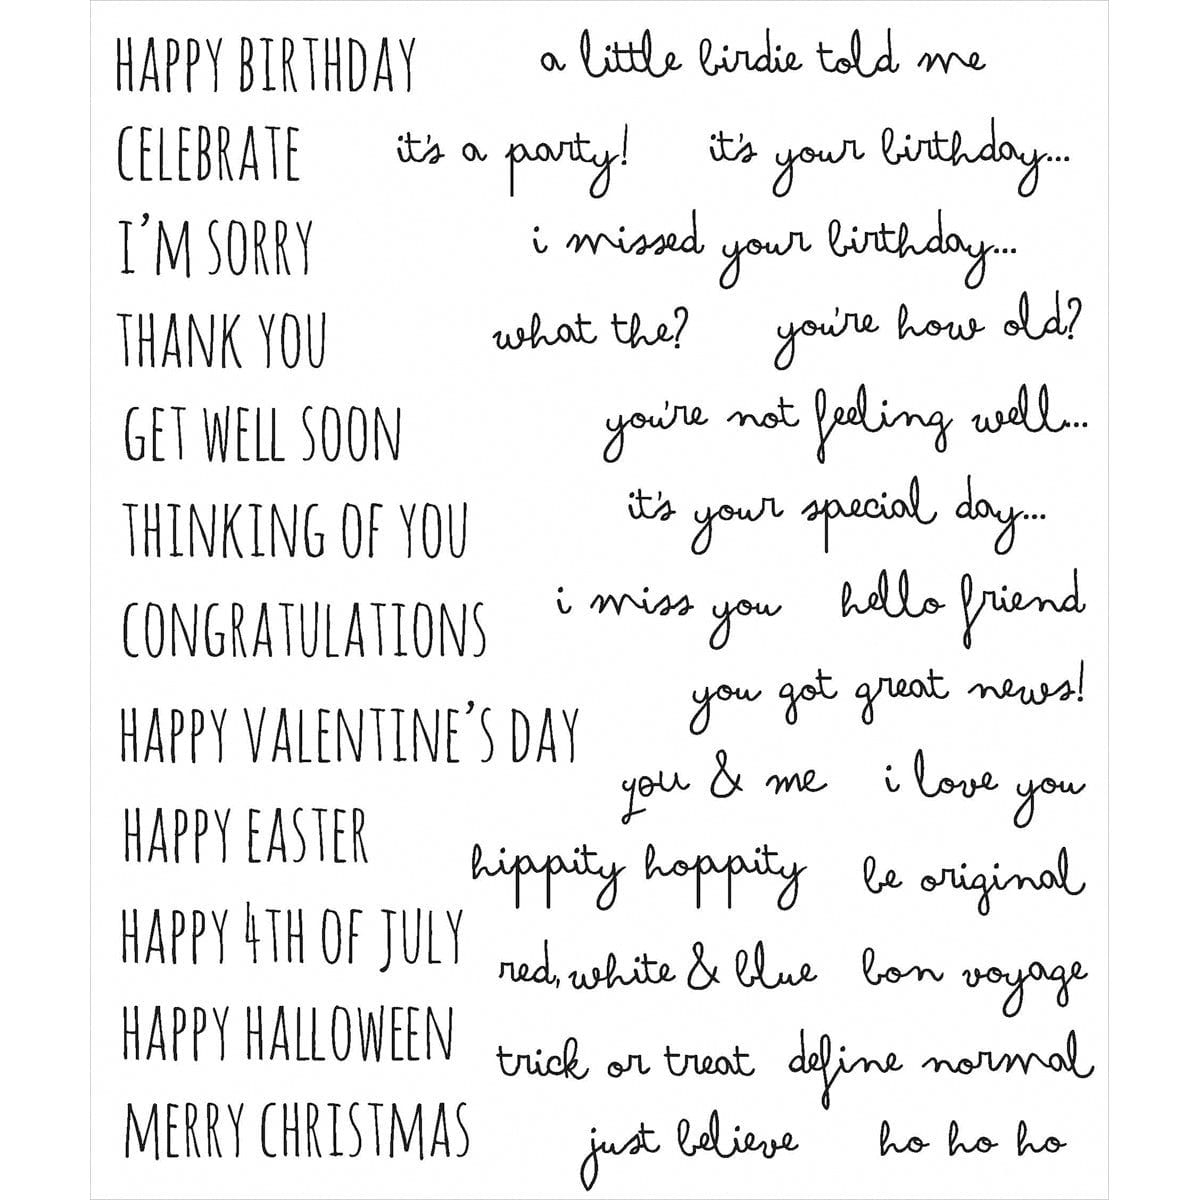 HAPPY BIRTHDAY a little birdie told me
CELEBRATE it's a party! it's your birthday...
I'M SORRY i missed your birthday...
THANK YOU what the? you're how old?
GET WELL SOON you're not feeling well...
THINKING OF YOU it's your special day...
CONGRATULATIONS i miss you hello friend
you got great news!
HAPPY VALENTINE'S DAY
you & me i love you
HAPPY EASTER hippity hoppity be original
HAPPY 4TH OF JULY red, white & blue bon voyage
HAPPY HALLOWEEN trick or treat define normal
MERRY CHRISTMAS just believe ho ho ho